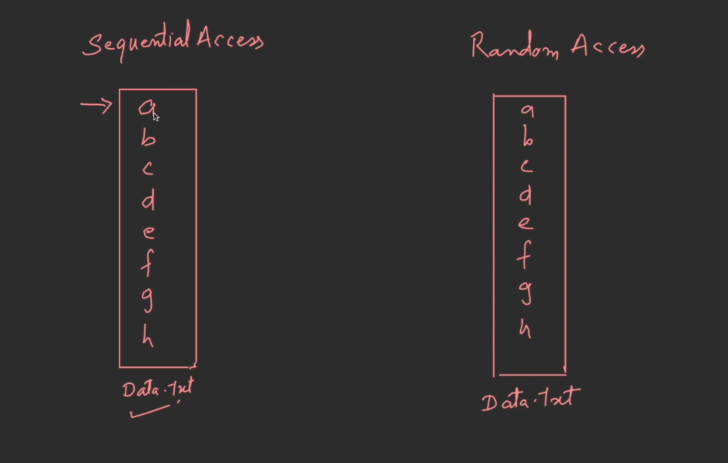 Sequential Access
a
b
c
d
e
f
g
h
Data.txt
Random Access
a
b
c
d
e
f
g
h
Data.txt